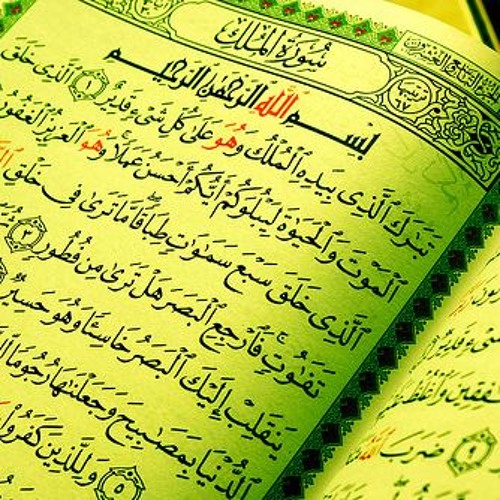 سُورَةُ المُلْكِ
بِسْمِ اللَّهِ الرَّحْمَٰنِ الرَّحِيمِ
تَبَٰرَكَ ٱلَّذِى بِيَدِهِ ٱلْمُلْكُ وَهُوَ عَلَىٰ كُلِّ شَىْءٍ قَدِيرٌ ١ ٱلَّذِى خَلَقَ
ٱلْمَوْتَ وَٱلْحَيَوٰةَ لِيَبْلُوَكُمْ أَيُّكُمْ أَحْسَنُ عَمَلًا وَهُوَ ٱلْعَزِيزُ ٱلْغَفُورُ
ٱلَّذِى خَلَقَ سَبْعَ سَمَٰوَٰتٍ طِبَاقًا مَّا تَرَىٰ فِى خَلْقِ
تَفَٰوُتٍ فَٱرْجِعِ ٱلْبَصَرَ هَلْ تَرَىٰ مِن فُطُورٍ ٣
يَنقَلِبْ إِلَيْكَ ٱلْبَصَرُ خَاسِئًا وَهُوَ حَسِيرٌ
ٱلدُّنْيَا بِمَصَٰبِيحَ وَجَعَلْنَٰهَا رُجُومًا
٥ وَلِلَّذِينَ كَفَرُوا۟
ضَرَبَ ٱللَّهُ